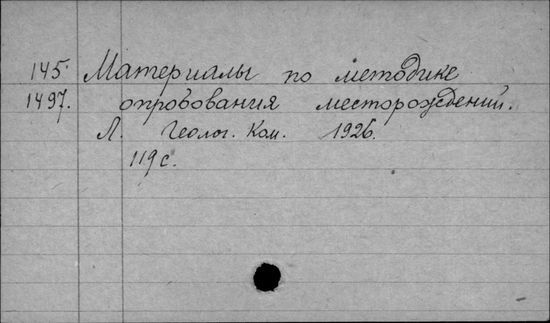 145 Материалы по методике
1497. опробования месторождений.
Л. Геолог. Ком. 1926.
119 с.